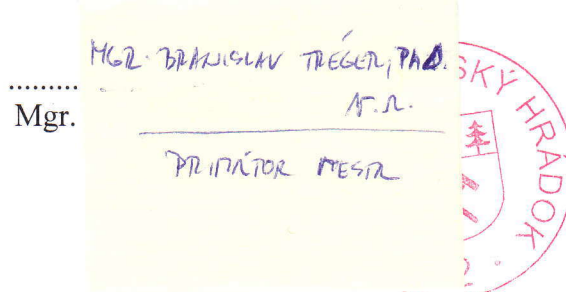 MGR. BRANISLAV TRÉGER, PhD.
V.R.
PRIMÁTOR MESTA
..........
Mgr.
SKÝ HRÁDOK